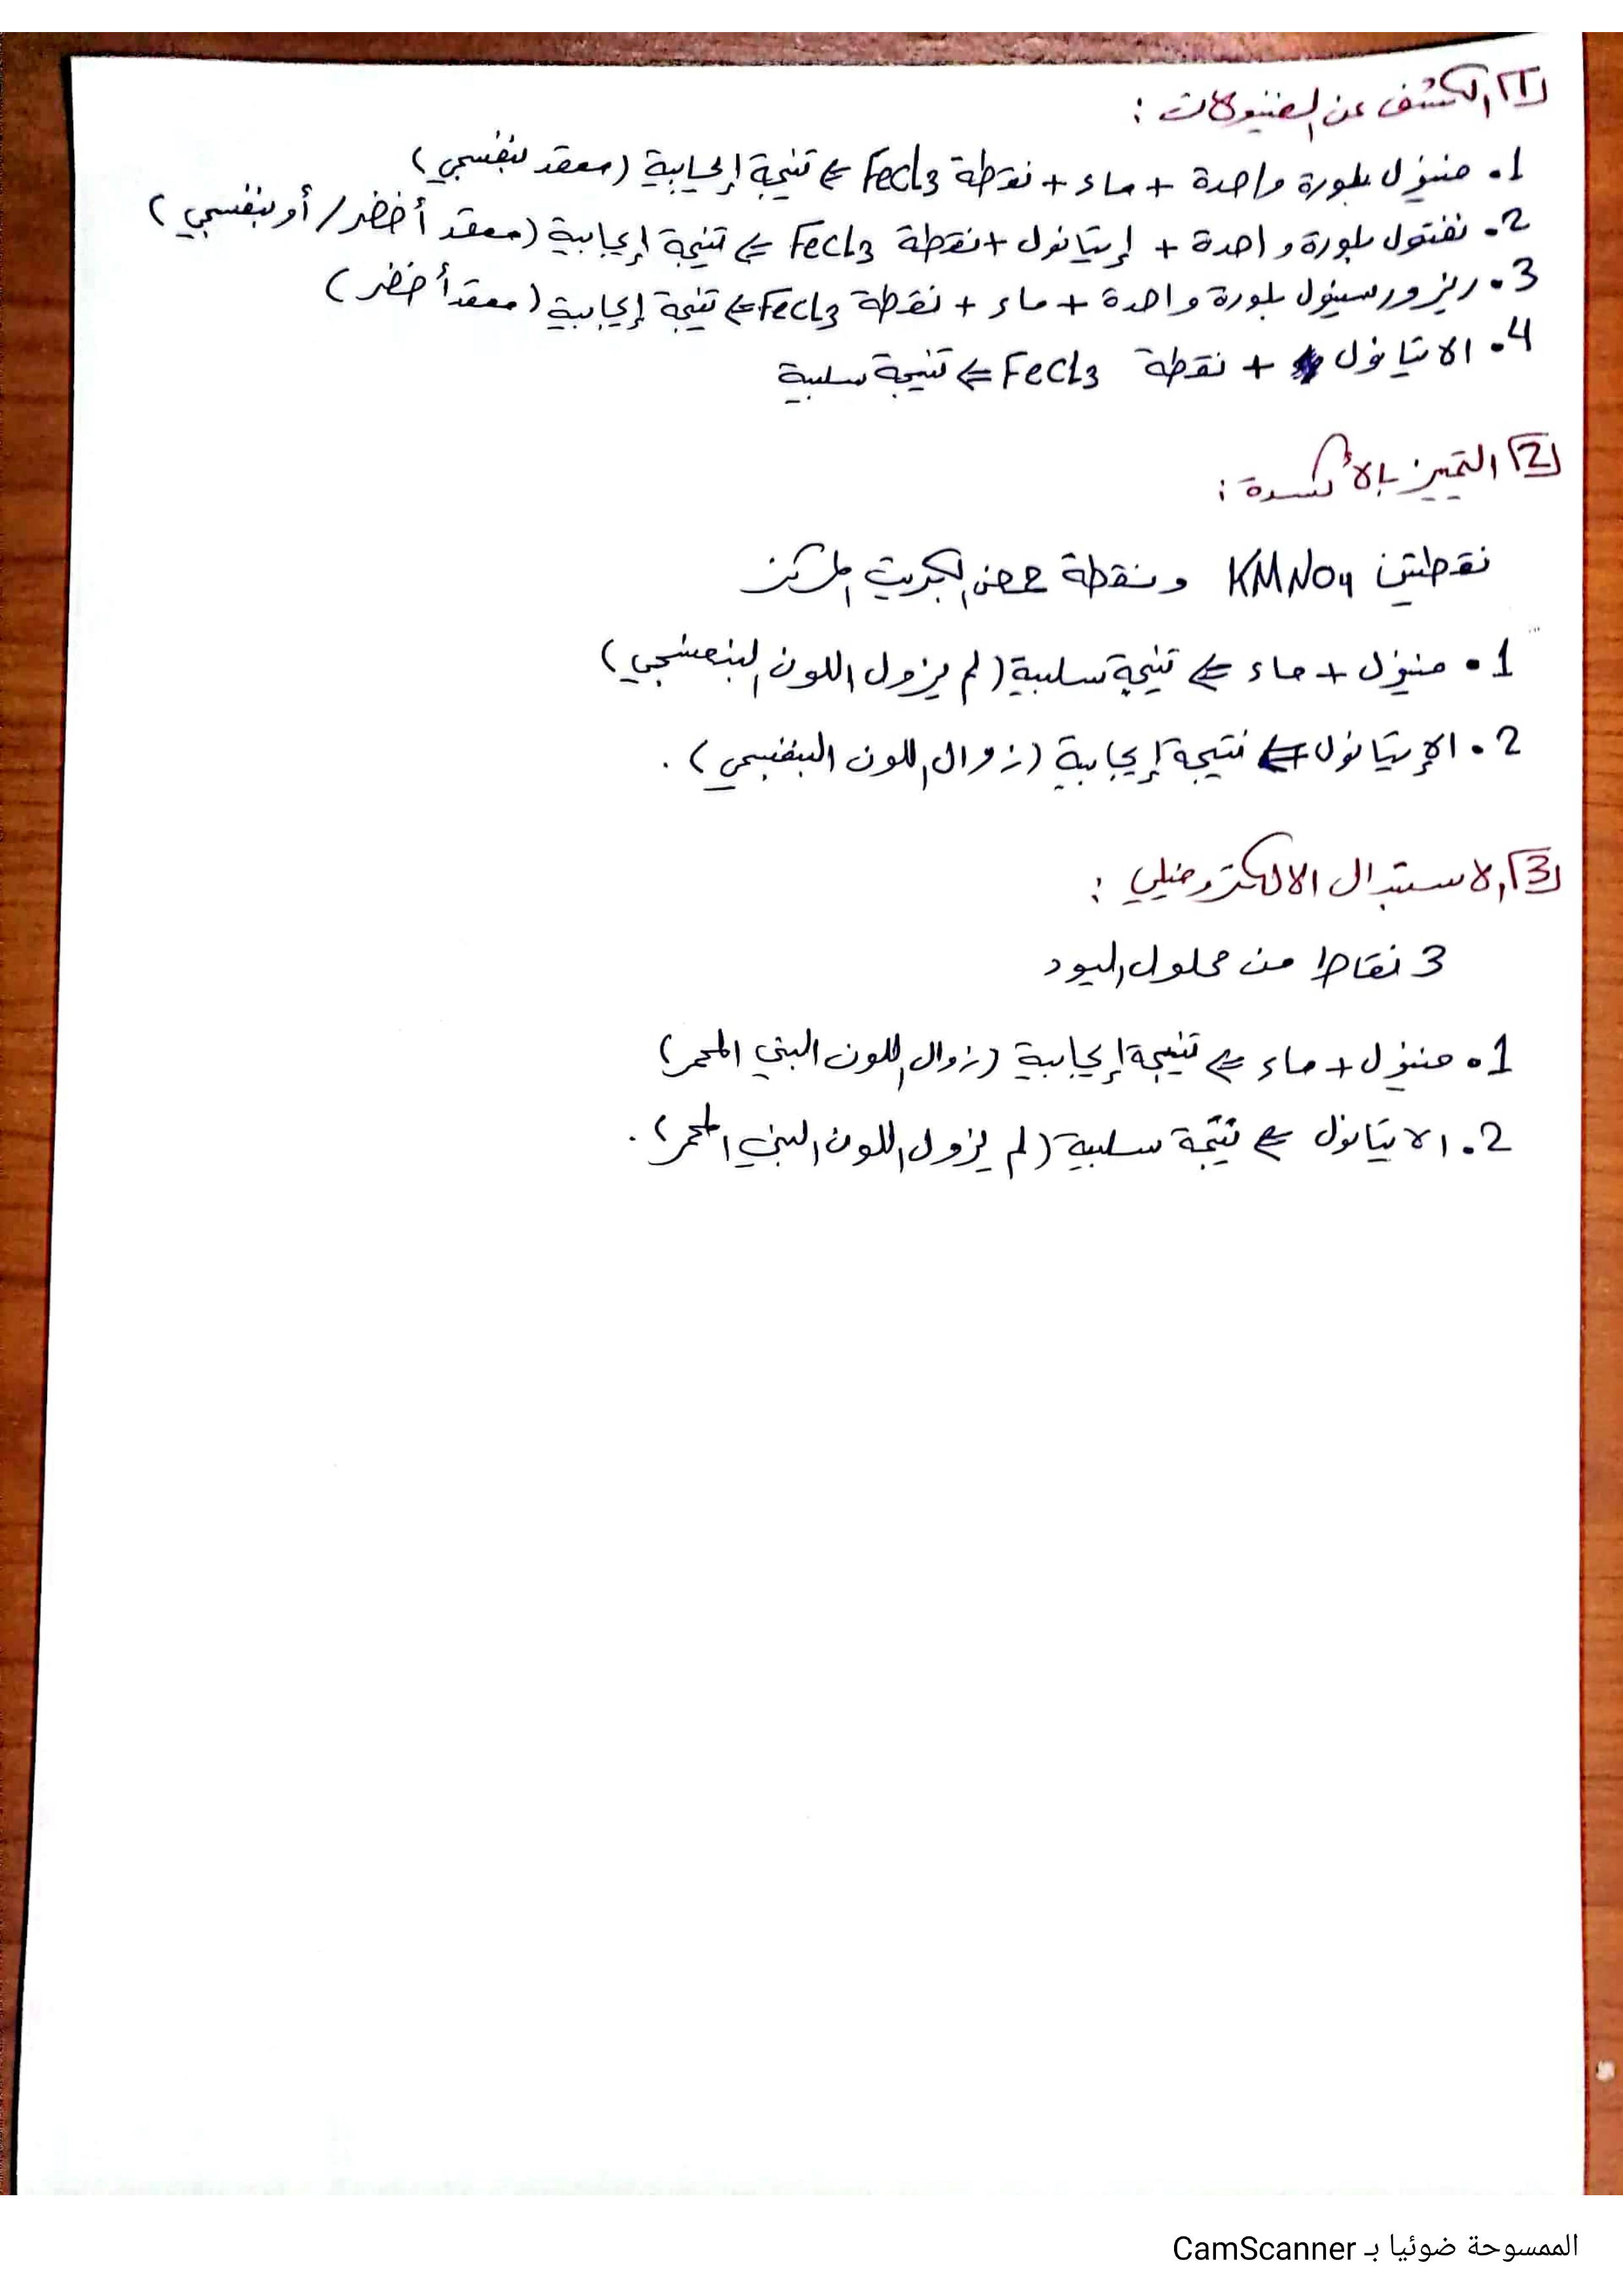 1 الكشف عن الفينولات :
1. فينول بلورة واحدة + ماء + نقطة FeCl3 ⇐ نتيجة إيجابية (معقد بنفسجي)
2. نفتول بلورة واحدة + إيتانول + نقطة FeCl3 ⇐ نتيجة إيجابية (معقد أخضر / أو بنفسجي)
3. ريزورسينول بلورة واحدة + ماء + نقطة FeCl3 ⇐ نتيجة إيجابية (معقد أخضر)
4. الايتانول + نقطة FeCl3 ⇐ نتيجة سلبية
2 التمييز بالأكسدة :
نقطتين KMNO4 ونقطة حمض الكبريت المركز
1. فينول + ماء ⇐ نتيجة سلبية (لم يزول اللون البنفسجي)
2. الإيتانول ⇐ نتيجة إيجابية (زوال اللون البنفسجي).
3 الاستبدال الالكتروفيلي :
3 نقاط من محلول اليود
1. فينول + ماء ⇐ نتيجة إيجابية (زوال اللون البني المحمر)
2. الايتانول ⇐ نتيجة سلبية (لم يزول اللون البني المحمر).
الممسوحة ضوئيا بـ CamScanner